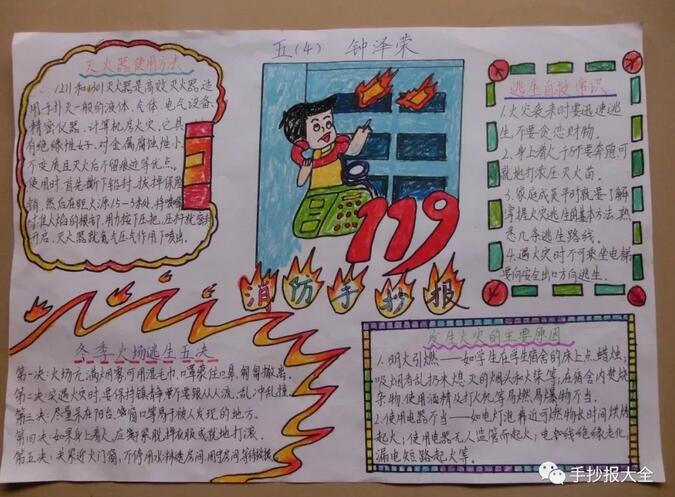 五(4) 钟泽荣
灭火器使用方法
1211和1301灭火器是高效灭火器适
用于扑灭一般的液体、气体、电气设备、
精密仪器、计算机房火灾,它具
有绝缘性好、对金属腐蚀性小、
不变质且灭火后不留痕迹等优点。
使用时首先撕下铅封、拔掉保险
销,然后在距火源1.5-5处,持喷嘴
对准火焰的根部,用力按下压把,压杆就
开启,灭火器就氮气压气作用下喷出。
119
消防手抄报
逃生自救常识
1.火灾袭来时要迅速逃
生不要贪恋财物。
2.身上着火,千万不要奔跑可
就地打滚压灭火苗。
3.家庭成员平时就要了解
掌握火灾逃生的基本方法,熟
悉几条逃生路线。
4.遇火灾时不可乘坐电梯
要向安全出口方向逃生。
冬季火场逃生五决
第一决:火场充满烟雾可用湿毛巾、口罩蒙住口鼻,匍匐撤离。
第二决:突遇火灾时,要保持镇静
人流、乱冲乱撞。
第三决:尽量呆在阳台、窗口等易于被人发现的地方。
第四决:如果身上着火,应赶紧脱掉衣服或就地打滚。
第五决:关紧迎火门窗,不停用水
发生火灾的主要原因
1.明火引燃——如学生在学生宿舍的床上点蜡烛;
吸烟者乱扔未熄灭的烟头和火柴等;在宿舍内焚烧
杂物,使用油精及打火机等易燃易爆物不当。
2.使用电器不当——如电灯泡靠近可燃物长时间烘烤
起火;使用电器无人监管而起火;电套线绝缘老化;
漏电短路起火等。
手抄报大全